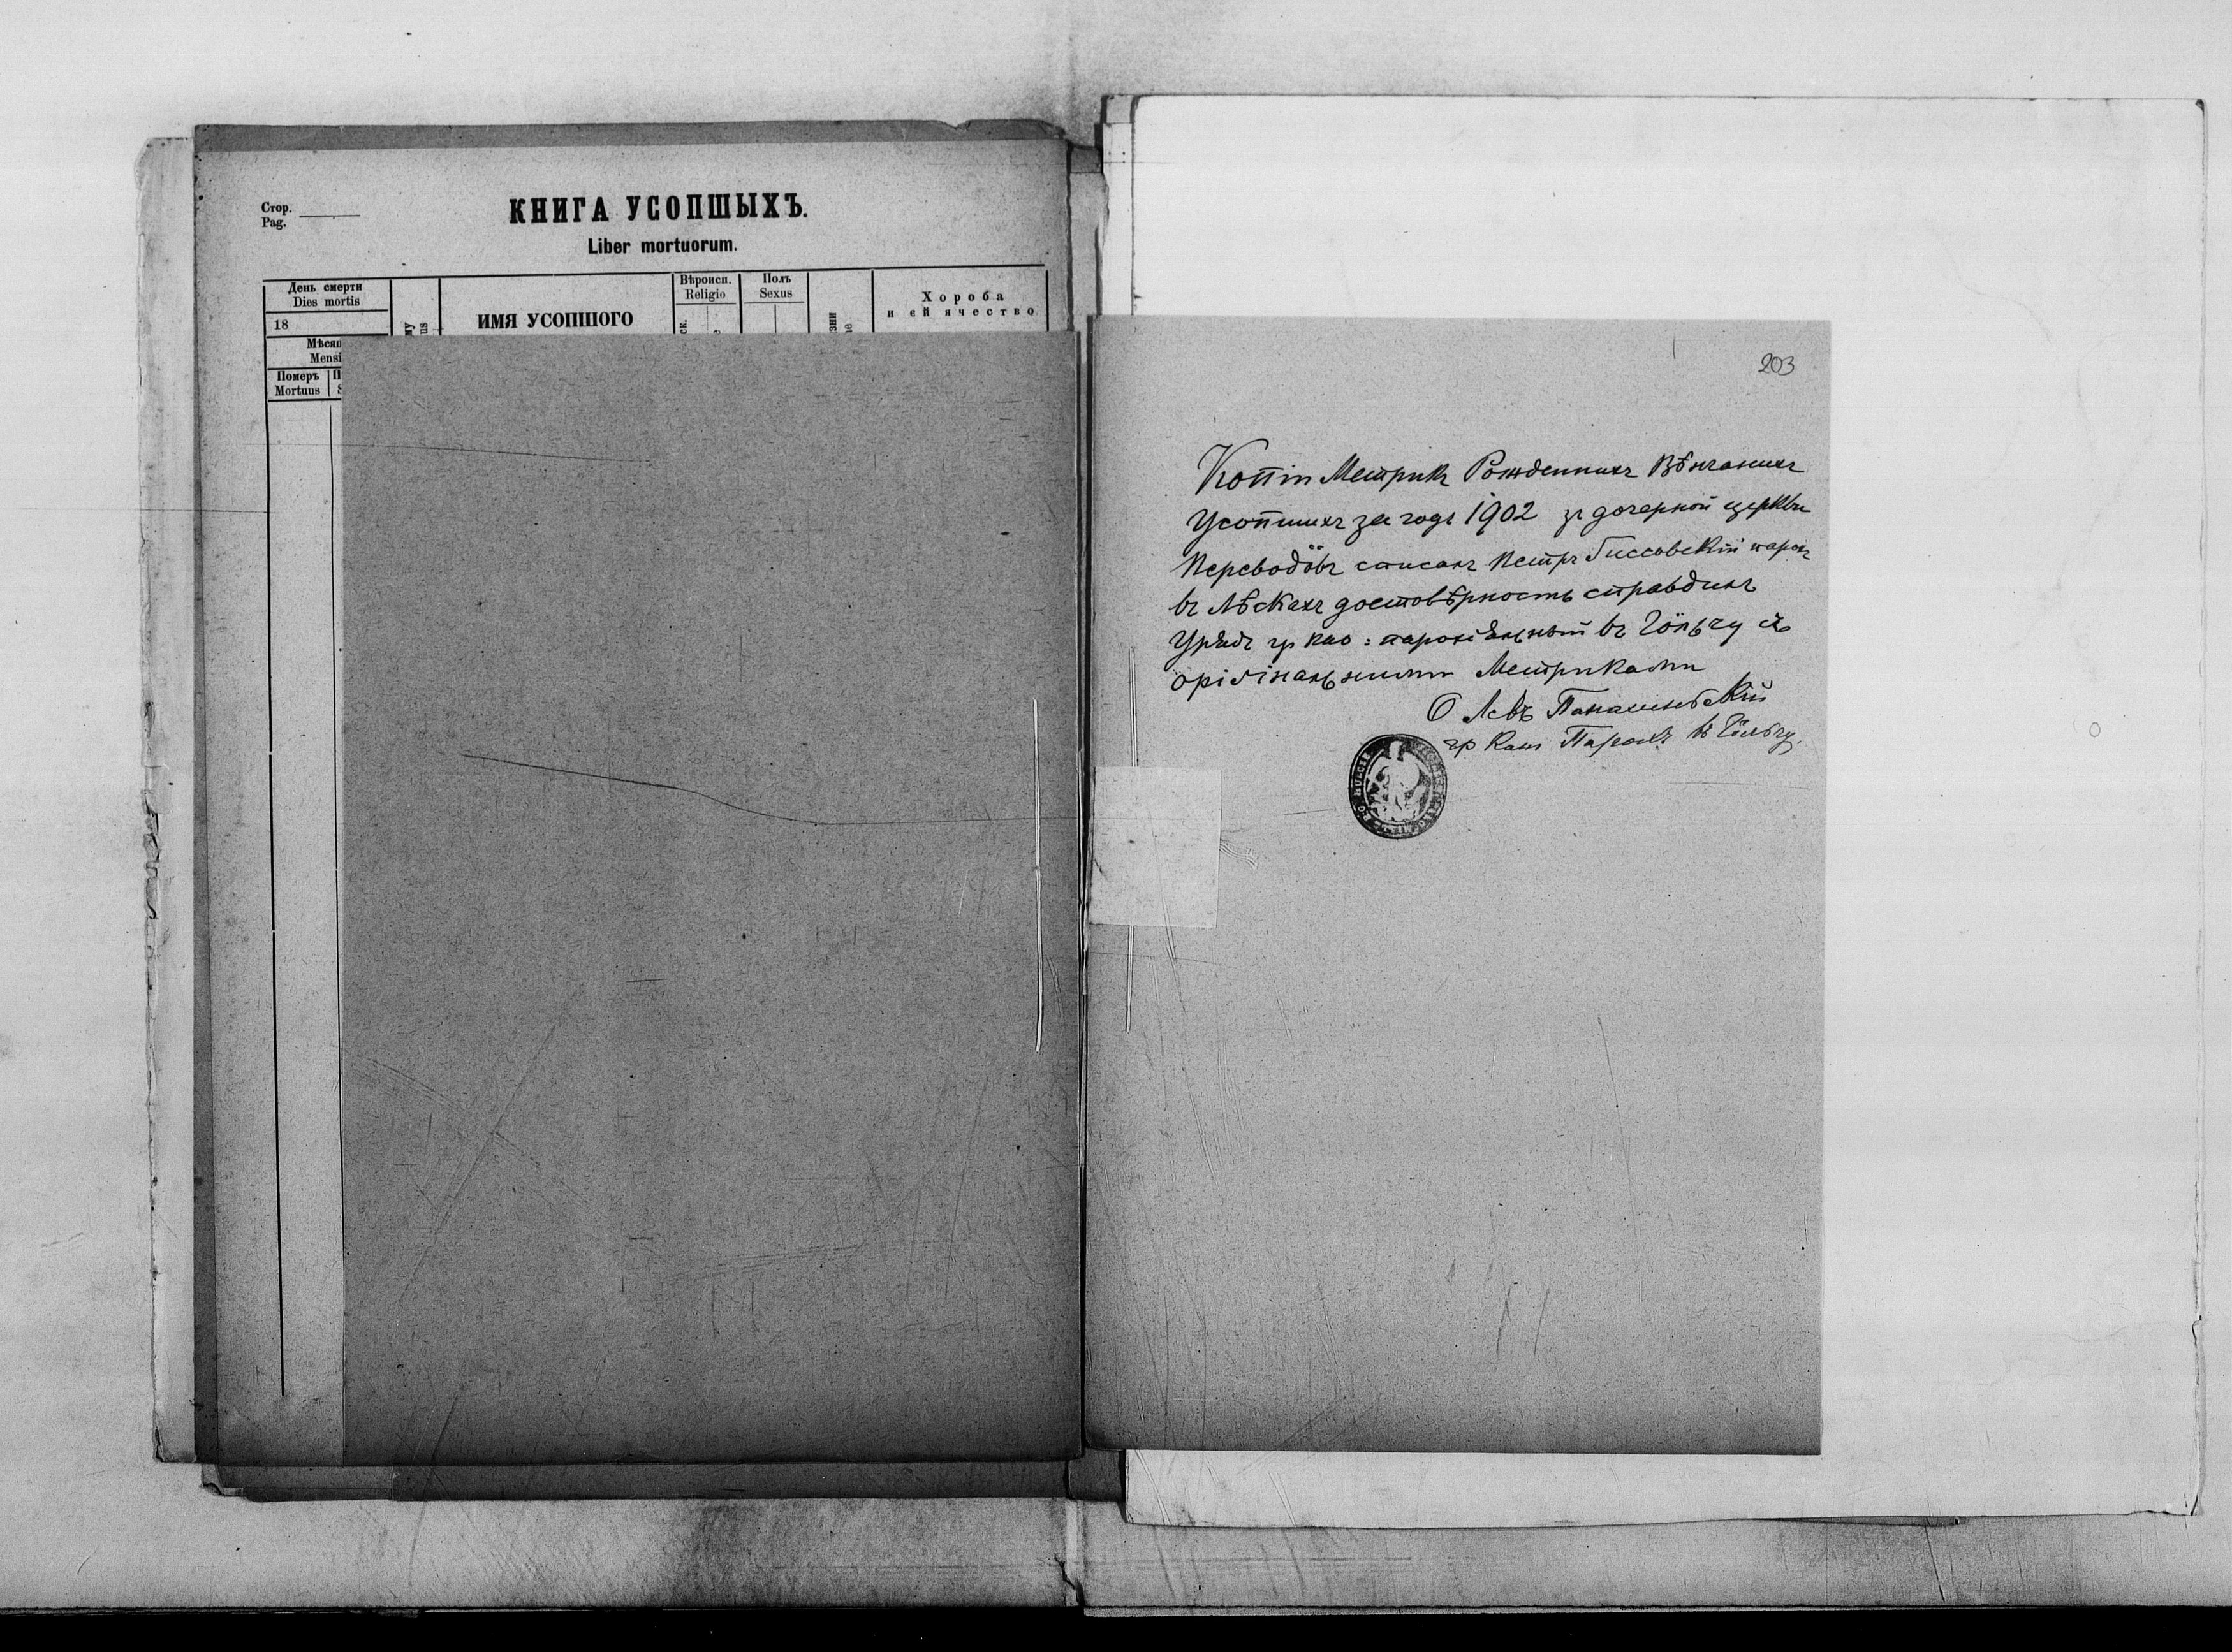 Стор.
Pag.
КНИГА УСОПШЫХЪ.
Liber mortuorum.
День смерти
Dies mortis
18
Мѣсяц
Mensi
Померъ
Mortuus
ИМЯ УСОПШОГО
Вѣроисп.
Religio
Полъ
Sexus
Хороба
и єй ячество
203
Копіи Метрикъ Рожденныхъ Вѣнчаныхъ
Усопшихъ за годъ 1902 зъ дочерной церкви
Переводôвъ списалъ Петръ Гиссовскій парохъ
въ Лѣскахъ достовѣрность справдилъ
Урядъ гр као: парохіяльный въ
оріґінальными Метриками
О Левъ
гр Кат Парохъ в